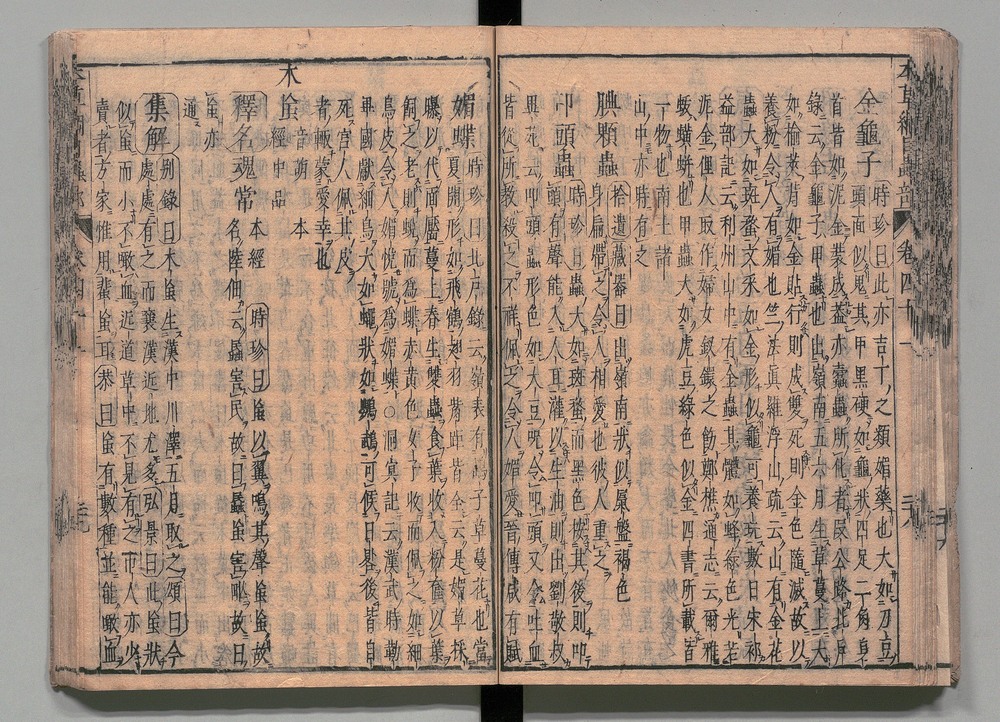 金龜子時珍曰此亦吉丁之類媚藥也大如刀豆
頭面似鬼其甲黑硬如龜狀四足二角身
首皆如泥金裝成蓋亦蠹蟲所化者段公路北戶
錄云金龜子甲蟲也出嶺南五六月生草蔓上大
如榆莢背如金貼行則成雙死則金色隨滅故以
養粉令人有媚也竺法真羅浮山疏云山有金花
蟲大如斑蝥文采如金形似龜可養玩數日宋祁
益部記云利州山中有金蟲其體如蜂綠色光若
泥金俚人取作婦女釵鐶之飾鄭樵通志云爾雅
蛂蟥蛢也甲蟲大如虎豆綠色似金四書所載皆
一物也南土諸
山中亦時有之
腆顆蟲拾遺藏器曰出嶺南狀似屍盤褐色
身扁帶之令人相愛也彼人重之
叩頭蟲時珍曰蟲大如斑蝥而黑色按其後則叩
頭有聲能入人耳灌以生油則出劉敬叔
異苑云叩頭蟲形色如大豆呪令叩頭又令吐血
皆從所教殺之不祥佩之令人媚愛晉傅咸有賦
媚蝶時珍曰北戶錄云嶺表有鶴子草蔓花也當
夏開形如飛鶴翅羽觜距皆全云是媚草採
曝以代面靨蔓上春生雙蟲食葉收入粉奩以葉
飼之老則蛻而為蝶赤黃色女子收而佩之如細
鳥皮令人媚悅號為媚蝶○洞冥記云漢武時勒
畢國獻細鳥大如蠅狀如鸚鵡可候日晷後皆自
死宮人佩其皮
者輒蒙愛幸也
木䖟音萌 本
經中品
釋名魂常本經時珍曰䖟以翼鳴其聲䖟䖟故
名陸佃云蟁害民故曰蟁䖟害甿故曰
䖟亦
通
集解別錄曰木䖟生漢中川澤五月取之頌曰今
處處有之而襄漢近地尤多弘景曰此䖟狀
似䖟而小不噉血近道草中不見有之市人亦少
賣者方家惟用蜚䖟耳恭曰䖟有數種並能噉血